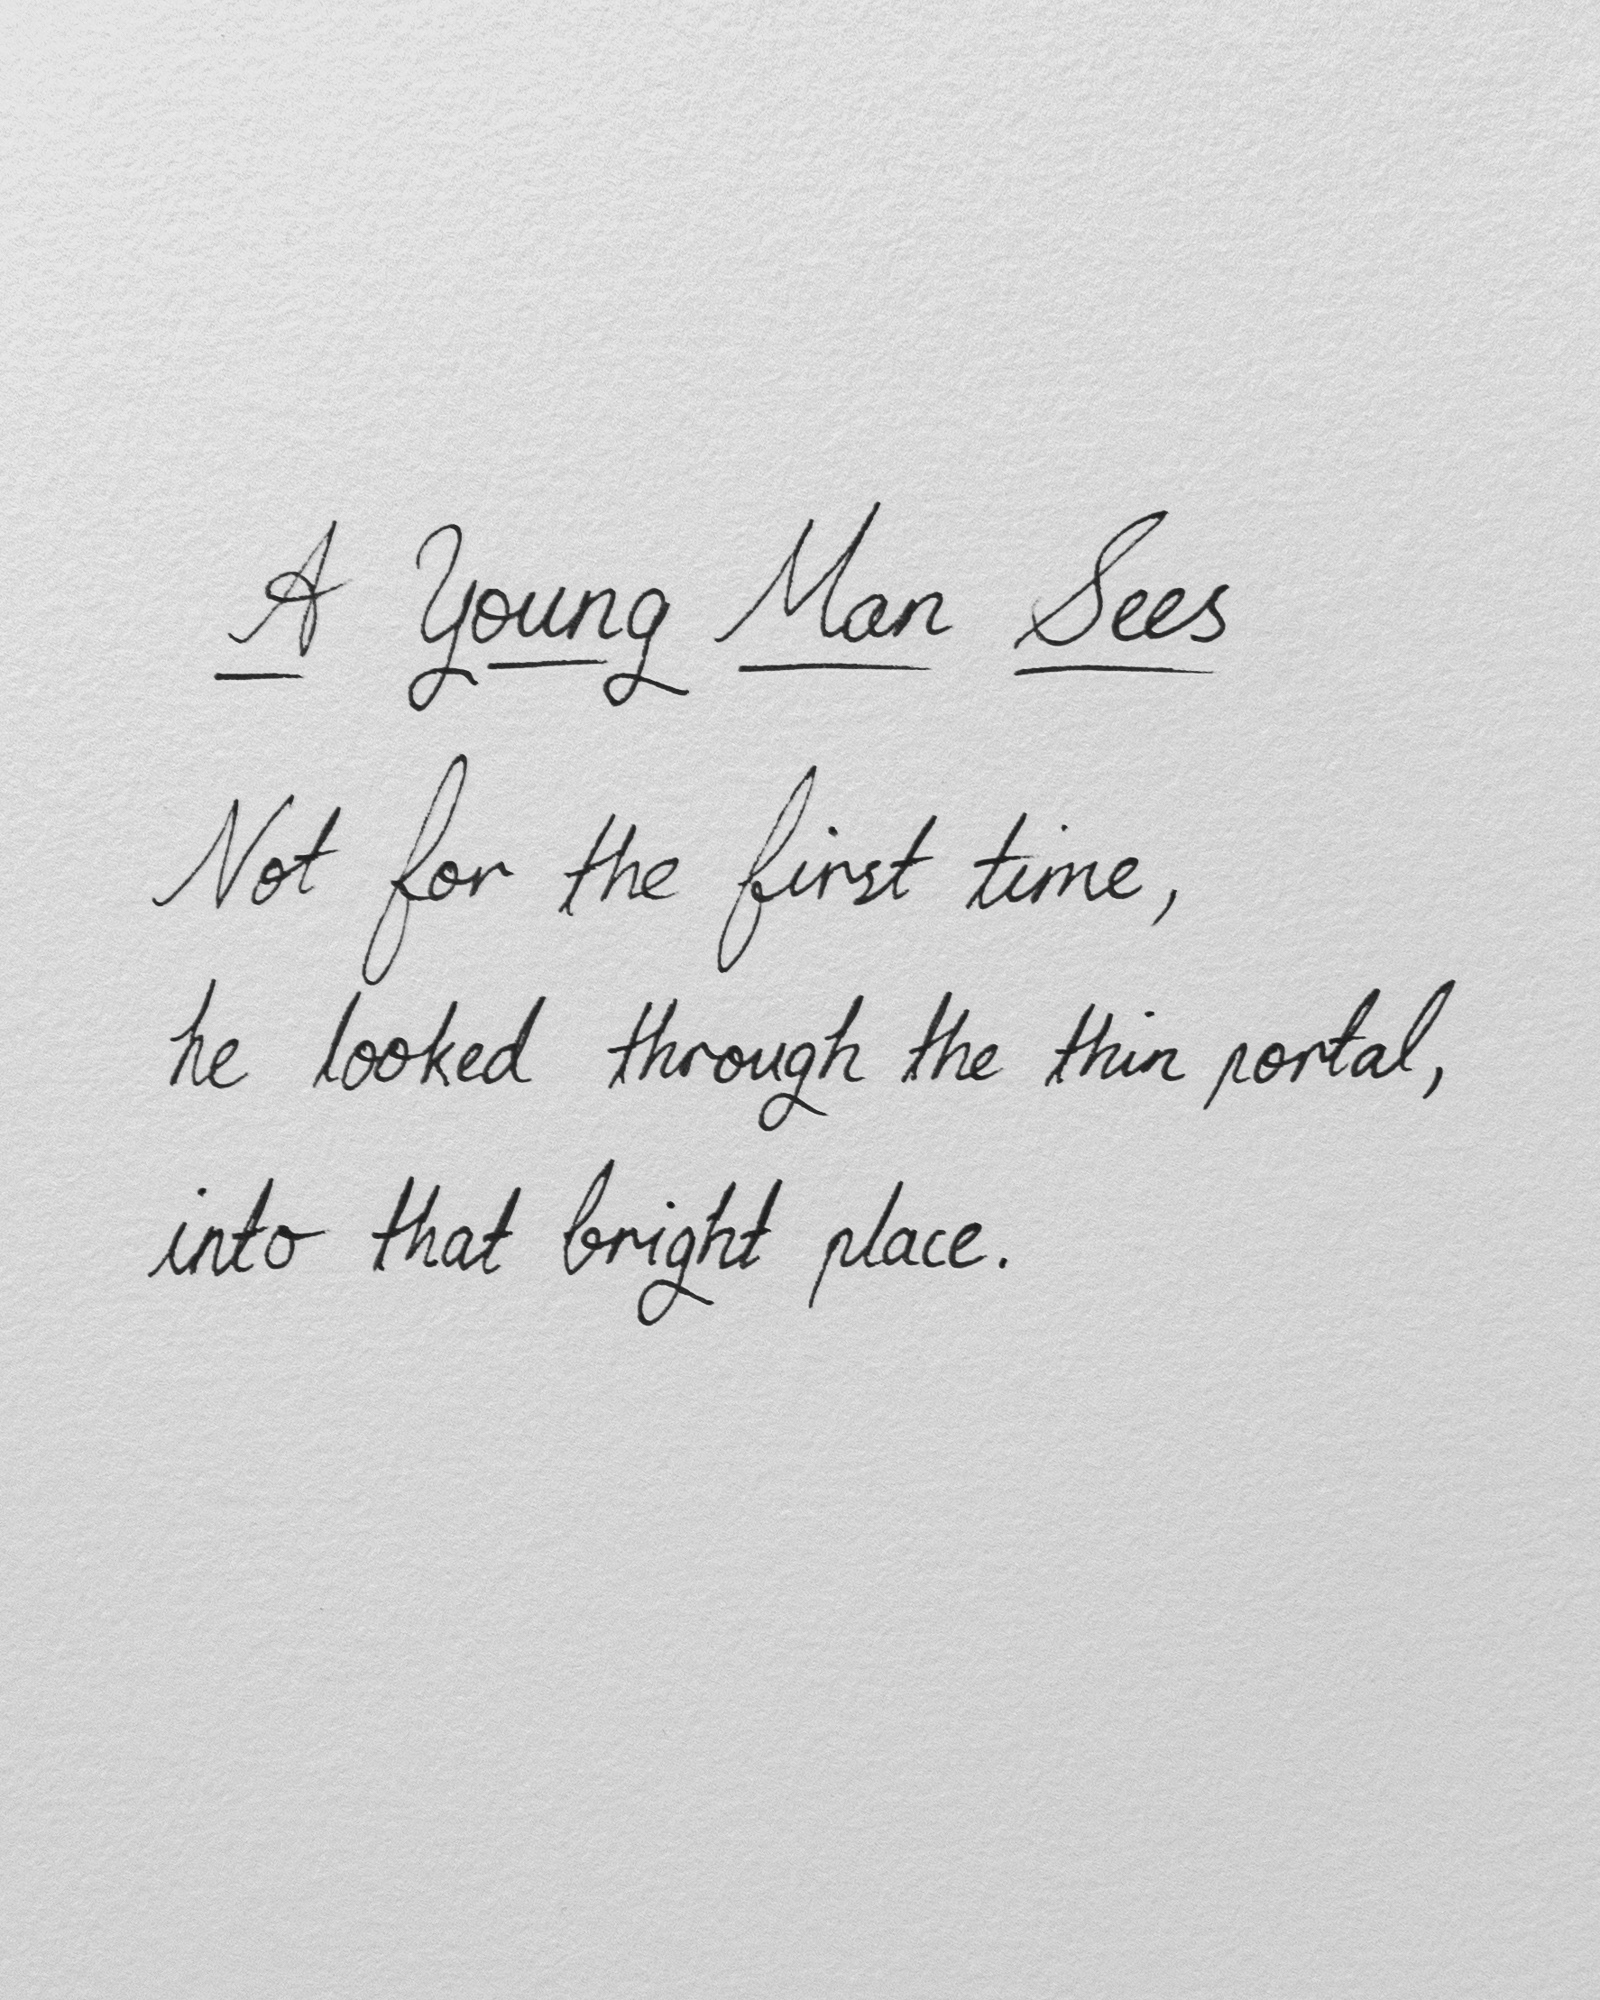 A Young Man Sees
Not for the first time,
he looked through the thin portal,
into that bright place.